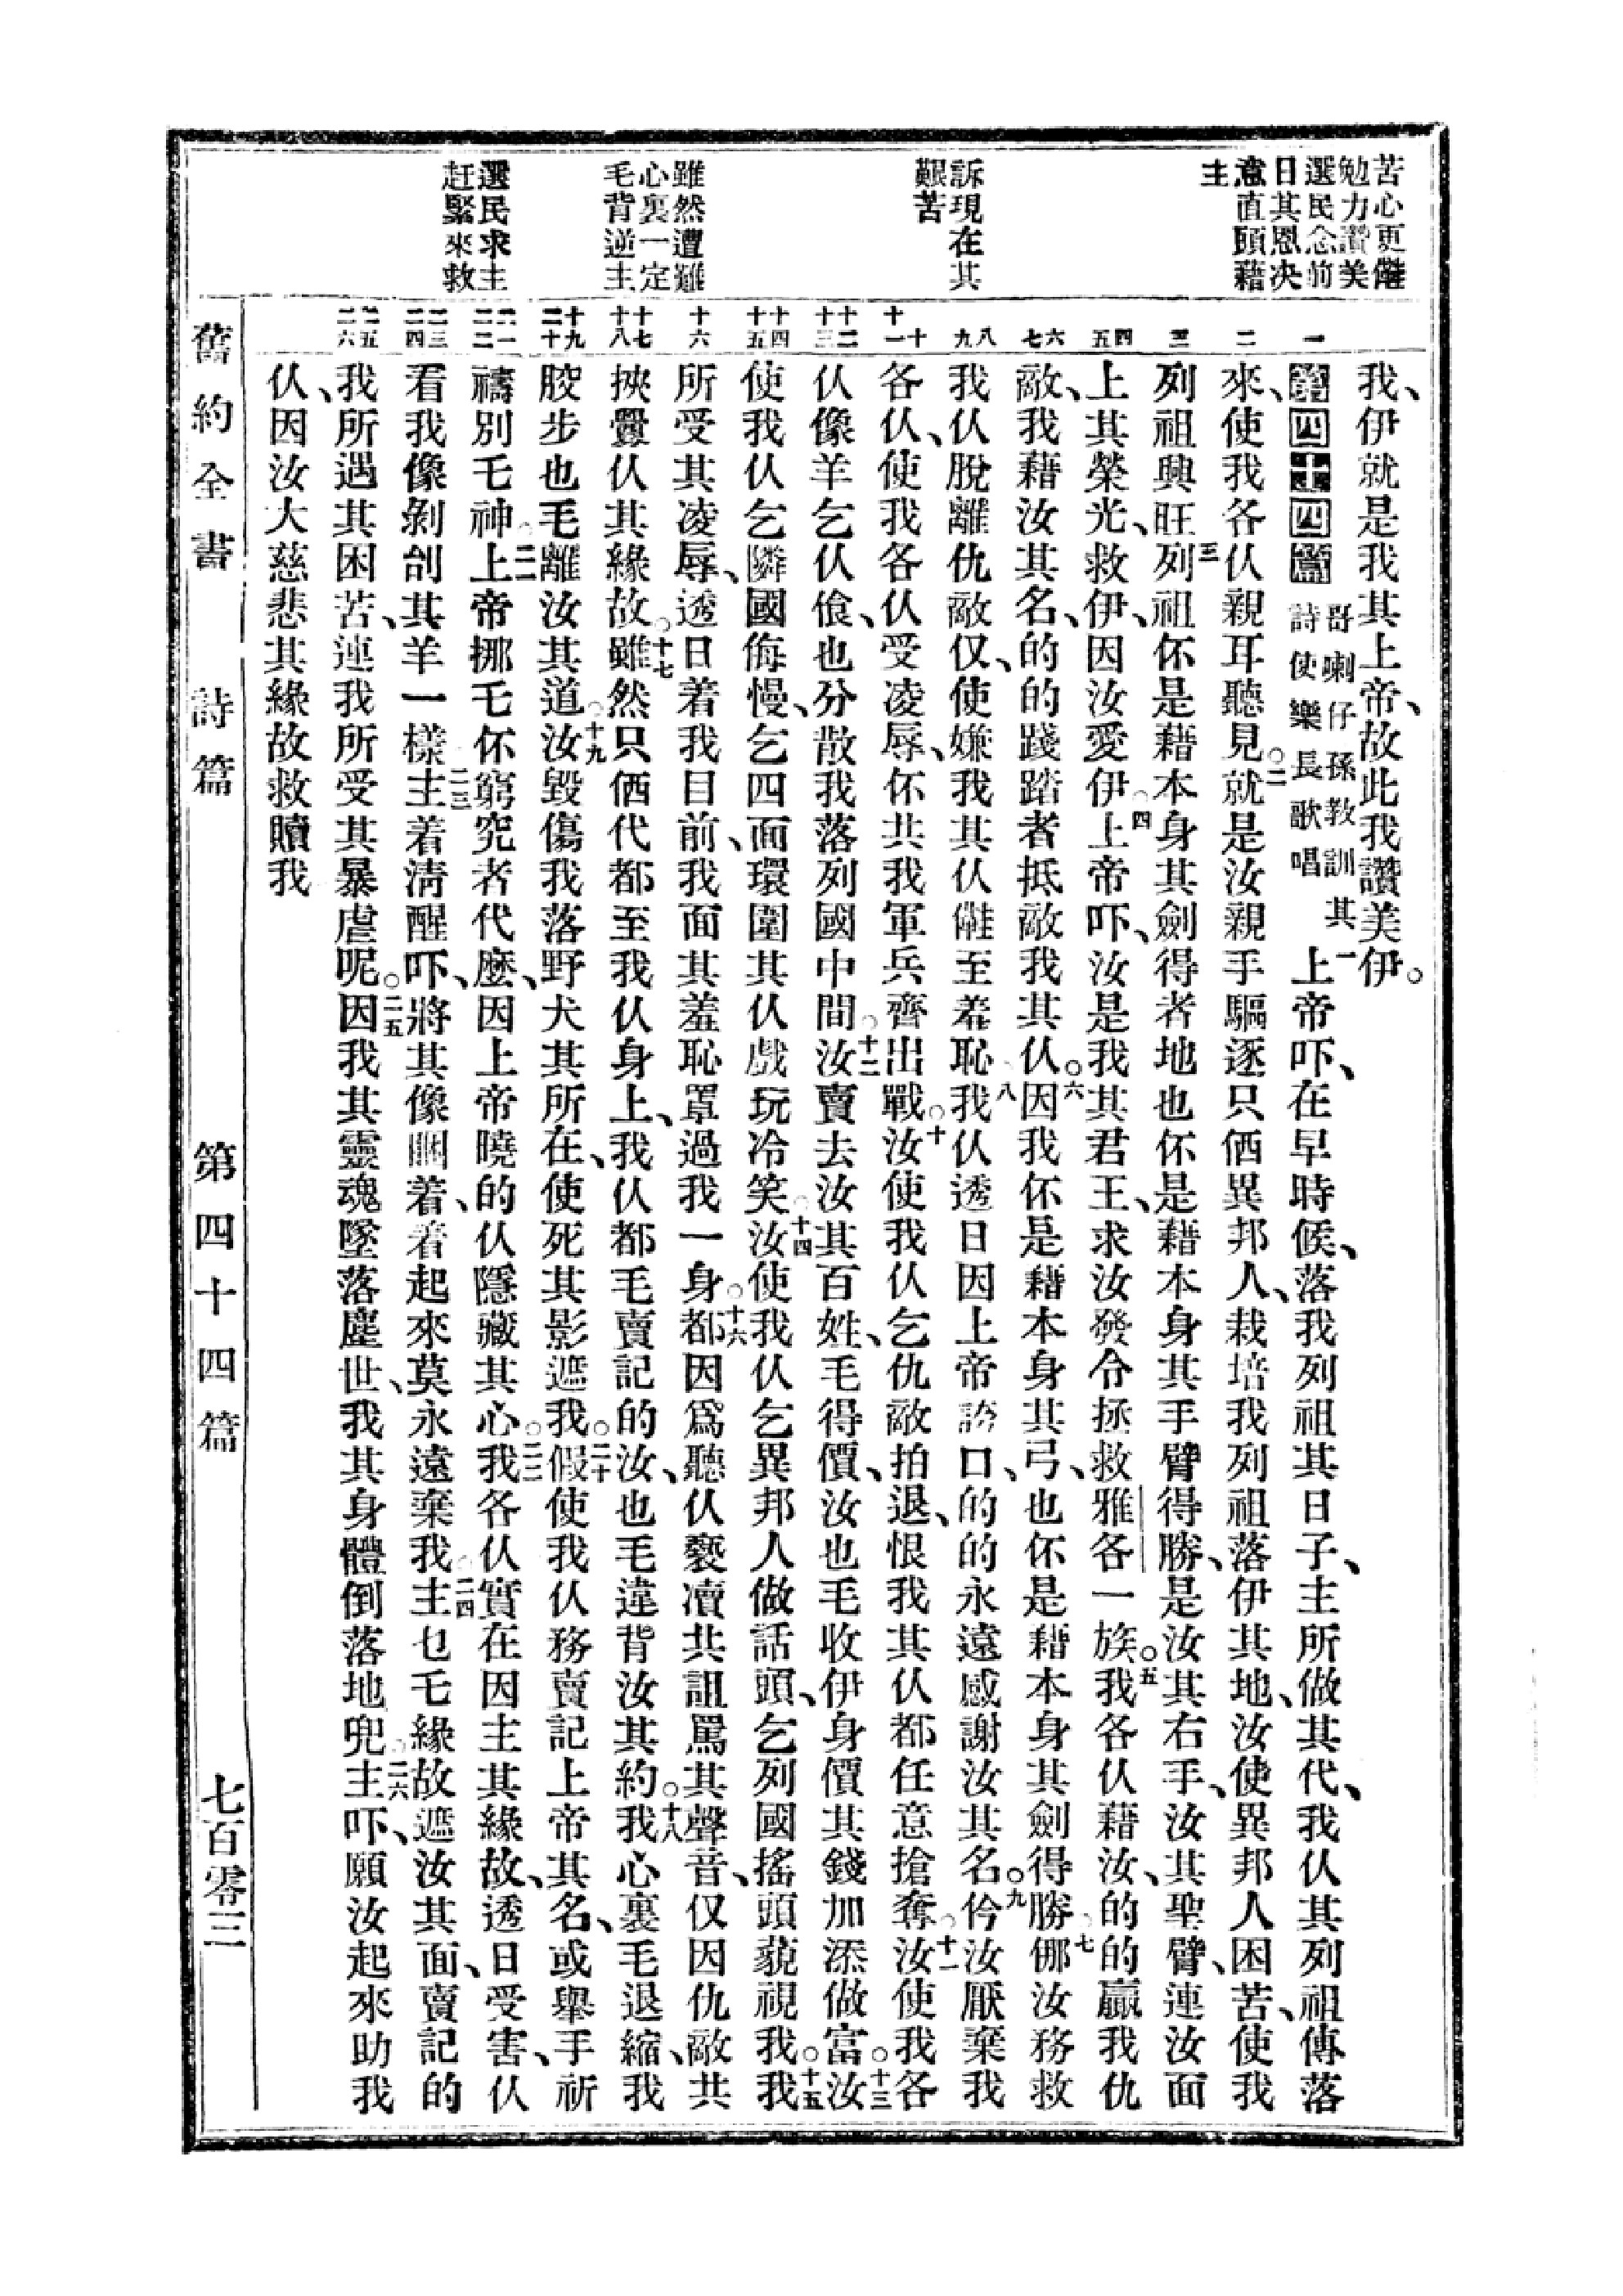 苦心更㒕
勉力讚美
選民念前
日其恩决
意直頭藉
主
訴現在其
艱苦
雖然遭難
心裏一定
毛背逆主
選民求主
赶緊來救
一
二
三
四
五
六
七
八
九
十
十一
十二
十三
十四
十五
十六
十七
十八
十九
二十
二一
二二
二三
二四
二五
二六
我、伊就是我其上帝、故此我讚美伊。
第四十四篇
哥喇仔孫教訓其
詩使樂長歌唱
一上帝吓、在早時候、落我列祖其日子、主所做其代、我仫其列祖傳落
來、使我各仫親耳聽見。二就是汝親手驅逐只伵異邦人、栽培我列祖落伊其地、汝使異邦人困苦、使我
列祖興旺三列祖伓是藉本身其劍得者地也伓是藉本身其手臂得勝、是汝其右手、汝其聖臂、連汝面
上其榮光、救伊、因汝愛伊。四上帝吓、汝是我其君王、求汝發令拯救雅各一族。五我各仫藉汝、的的贏我仇
敵、我藉汝其名、的的踐踏者抵敵我其仫。六因我伓是藉本身其弓、也伓是藉本身其劍得勝。七㑚汝務救
我仫脫離仇敵、仅使嫌我其仫㒕至羞恥八我仫透日因上帝誇口、的的永遠感謝汝其名。九仱汝厭棄我
各仫、使我各仫受凌辱、伓共我軍兵齊出戰。十汝使我仫乞仇敵拍退、恨我其仫都任意搶奪。十一汝使我各
仫像羊乞仫飡、也分散我落列國中間。十二汝賣去汝其百姓、毛得價、汝也毛收伊身價其錢加添做富。十三汝
使我仫乞隣國侮慢、乞四面環圍其仫戲玩冷笑。十四汝使我仫乞異邦人做話頭、乞列國搖頭藐視我。十五我
所受其凌辱、透日着我目前、我面其羞恥罩過我一身。十六都因爲聽仫褻凟共詛罵其聲音、仅因仇敵共
挾釁仫其緣故。十七雖然只伵代都至我仫身上、我仫都毛賣記的汝、也毛違背汝其約。十八我心裏毛退縮、我
腔步也毛離汝其道。十九汝毀傷我落野犬其所在、使死其影遮我。二十假使我仫務賣記上帝其名、或舉手祈
禱別乇神。二一上帝挪毛伓窮究者代麽、因上帝曉的仫隱藏其心。二二我各仫實在因主其緣故、透日受害、仫
看我像剝刣其羊一樣二三主着淸醒吓、將其像䦨着、着起來莫永遠棄我。二四主乜乇緣故遮汝其面、賣記的
我所遇其困苦、連我所受其暴虐呢。二五因我其靈魂墜落塵世、我其身體倒落地兜。二六主吓、願汝起來助我
仫、因汝大慈悲其緣故救贖我
舊約全書　詩篇　第四十四篇　七百零三